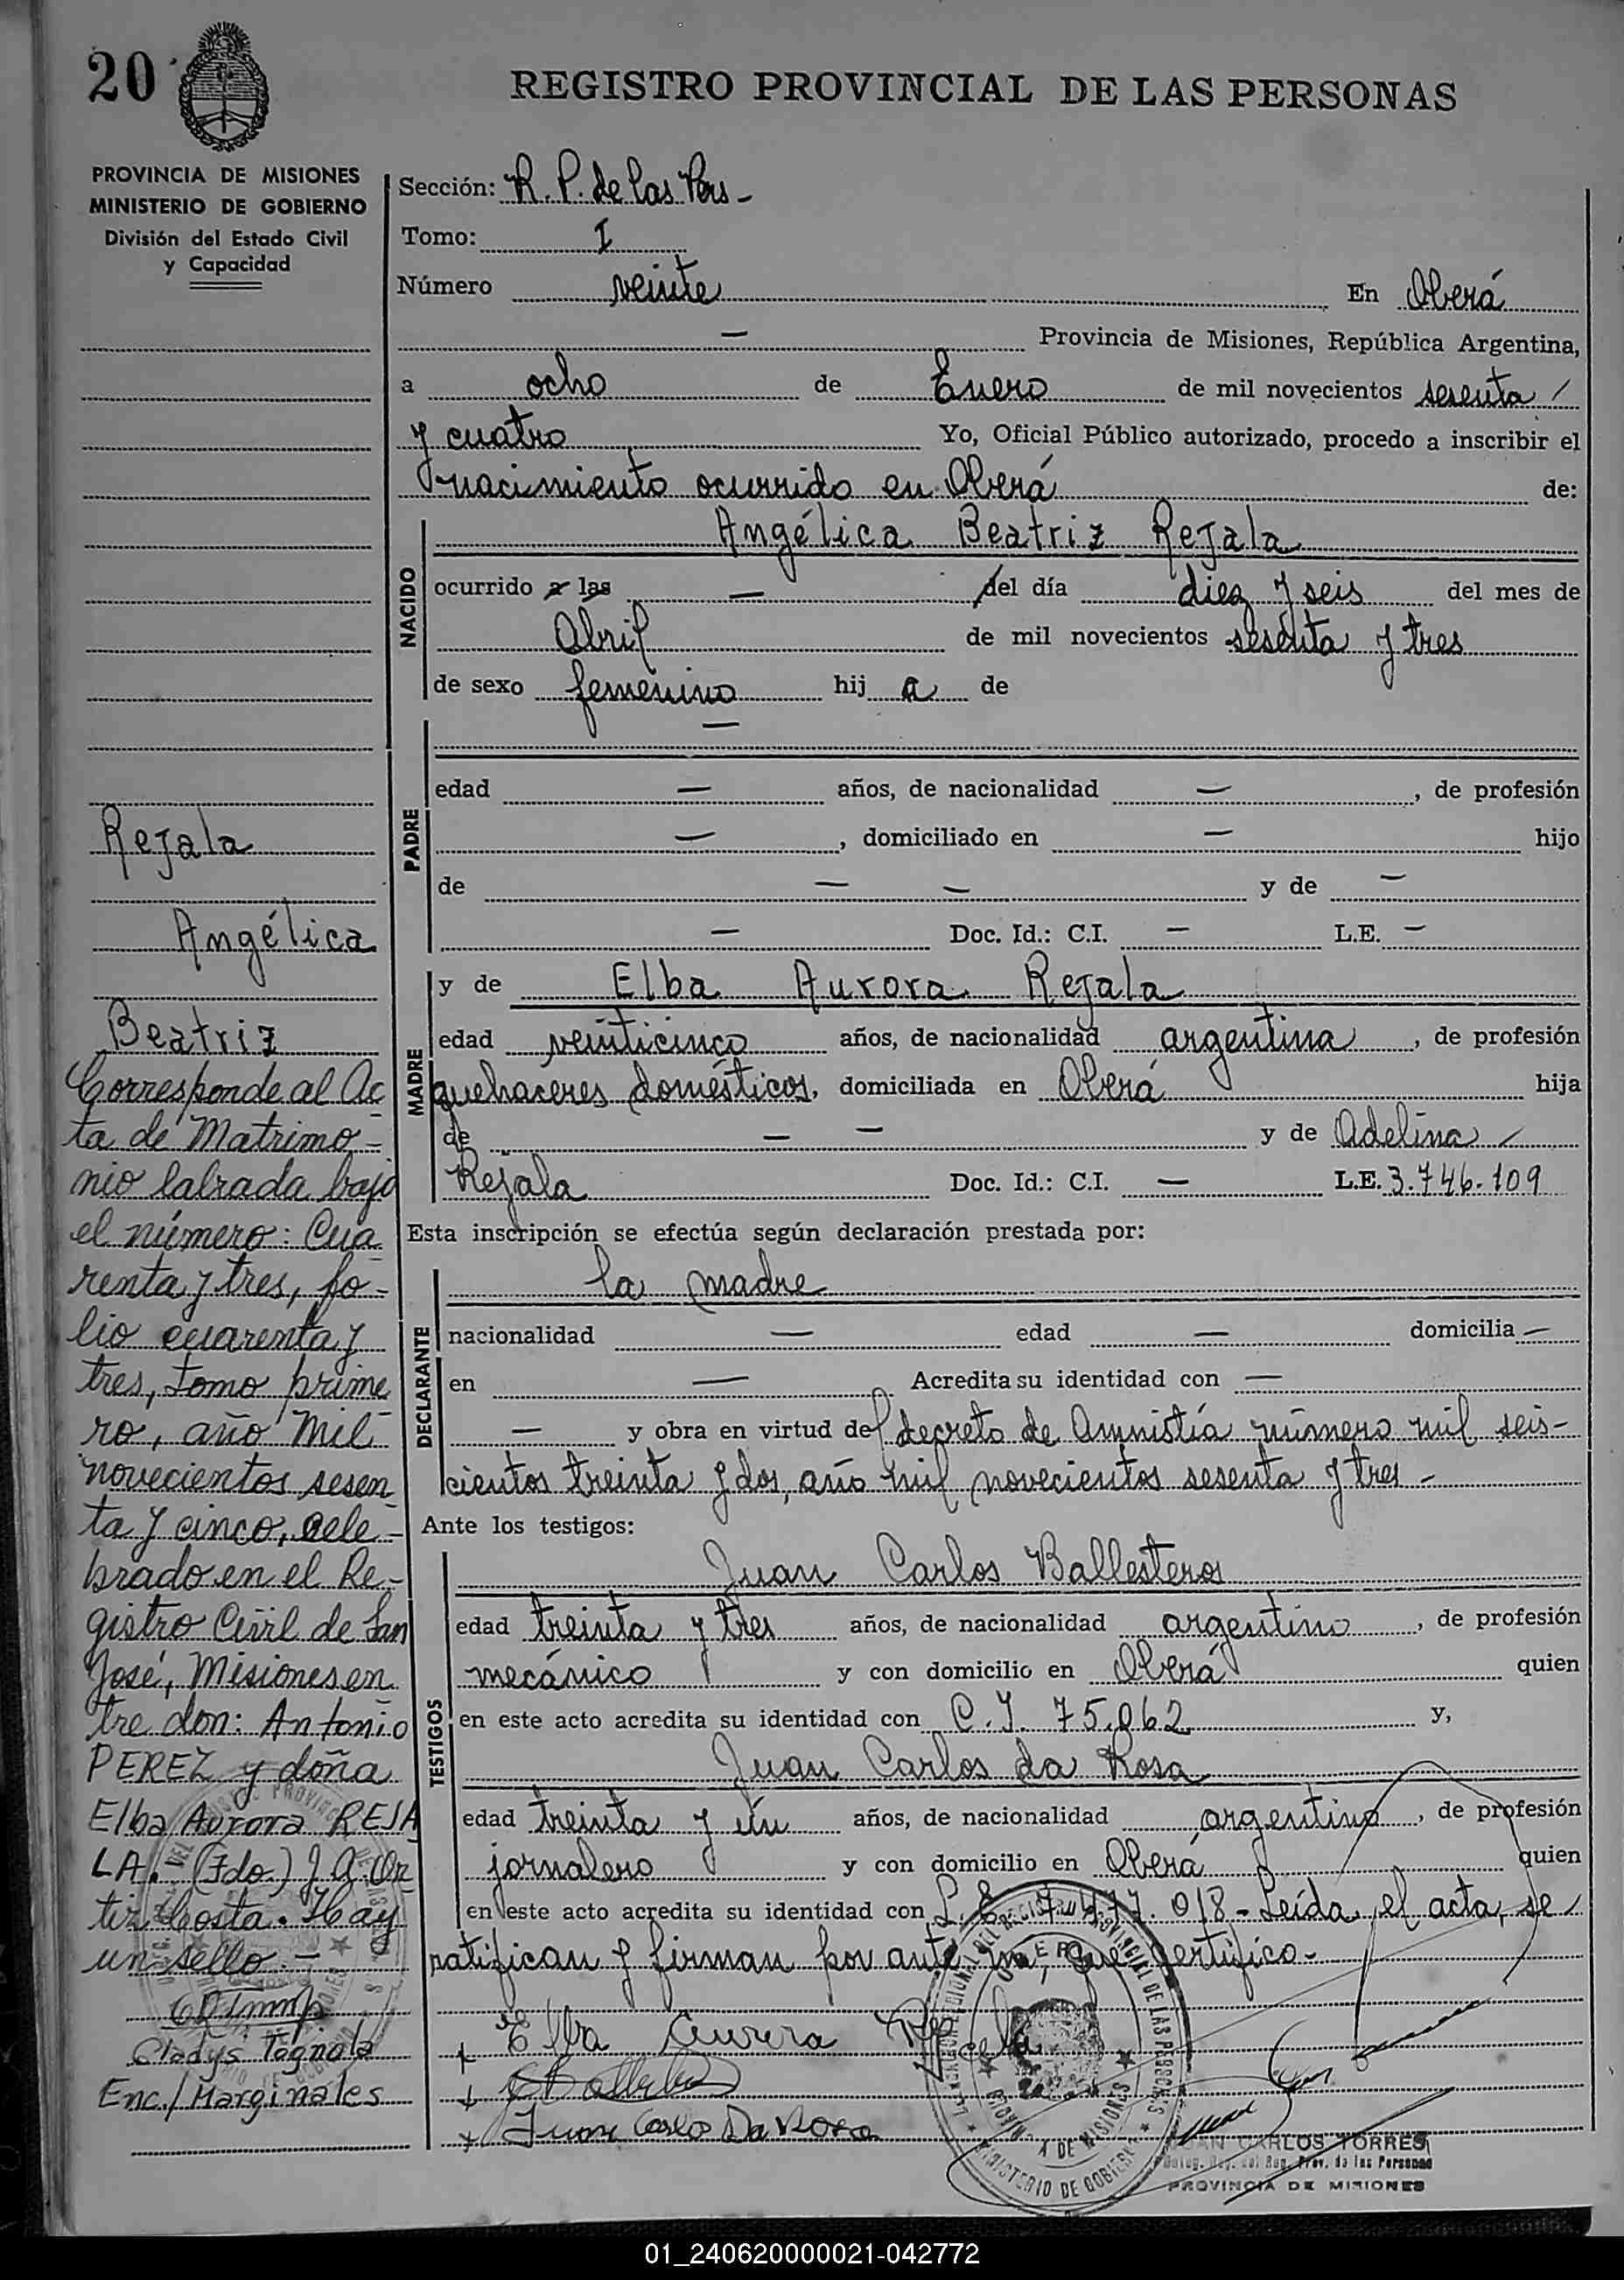 20
REGISTRO PROVINCIAL DE LAS PERSONAS
PROVINCIA DE MISIONES
MINISTERIO DE GOBIERNO
División del Estado Civil
y Capacidad
Sección: R. P. de las Pers -
Tomo: I
Número veinte En Oberá
— Provincia de Misiones, República Argentina,
a ocho de Enero de mil novecientos sesenta /
y cuatro Yo, Oficial Público autorizado, procedo a inscribir el
nacimiento ocurrido en Oberá de:
NACIDO
Angélica Beatriz Rejala
ocurrido a las — del día diez y seis del mes de
Abril de mil novecientos sesenta y tres
de sexo femenino hij a de
PADRE
—
edad — años, de nacionalidad — , de profesión
— , domiciliado en — hijo
de — — y de —
— Doc. Id.: C.I. — L.E. —
MADRE
y de Elba Aurora Rejala
edad veinticinco años, de nacionalidad argentina , de profesión
quehaceres domésticos, domiciliada en Oberá hija
de — — y de Adelina /
Rejala Doc. Id.: C.I. — L.E. 3.746.109
Esta inscripción se efectúa según declaración prestada por:
DECLARANTE
la madre
nacionalidad — edad — domicilia —
en — Acredita su identidad con —
— y obra en virtud del decreto de Amnistía número mil seis-
cientos treinta y dos, año mil novecientos sesenta y tres -
Ante los testigos:
TESTIGOS
Juan Carlos Ballesteros
edad treinta y tres años, de nacionalidad argentino , de profesión
mecánico y con domicilio en Oberá quien
en este acto acredita su identidad con C.I. 75.062 y,
Juan Carlos da Rosa
edad treinta y un años, de nacionalidad argentino , de profesión
jornalero y con domicilio en Oberá quien
en este acto acredita su identidad con L.E. 7.477.018 - Leída el acta, se /
ratifican y firman por ante mí, que certifico -
Elba Aurora Rejala
Juan Carlo Da Rosa
JUAN CARLOS TORRES
Deleg. Reg. del Reg. Prov. de las Personas
PROVINCIA DE MISIONES
Rejala
Angélica
Beatriz
Corresponde al Ac
ta de Matrimo-
nio labrada bajo
el número: Cua
renta y tres, fo-
lio cuarenta y
tres, tomo prime
ro, año mil
novecientos sesen
ta y cinco, cele-
brado en el Re-
gistro Civil de San
José, Misiones en
tre don: Antonio
PEREZ y doña
Elba Aurora REJA
LA. (Fdo.) J. A. Or
tiz Acosta. Hay
un sello. -
Gladys Tagnola
Enc./ Marginales
01_240620000021-042772